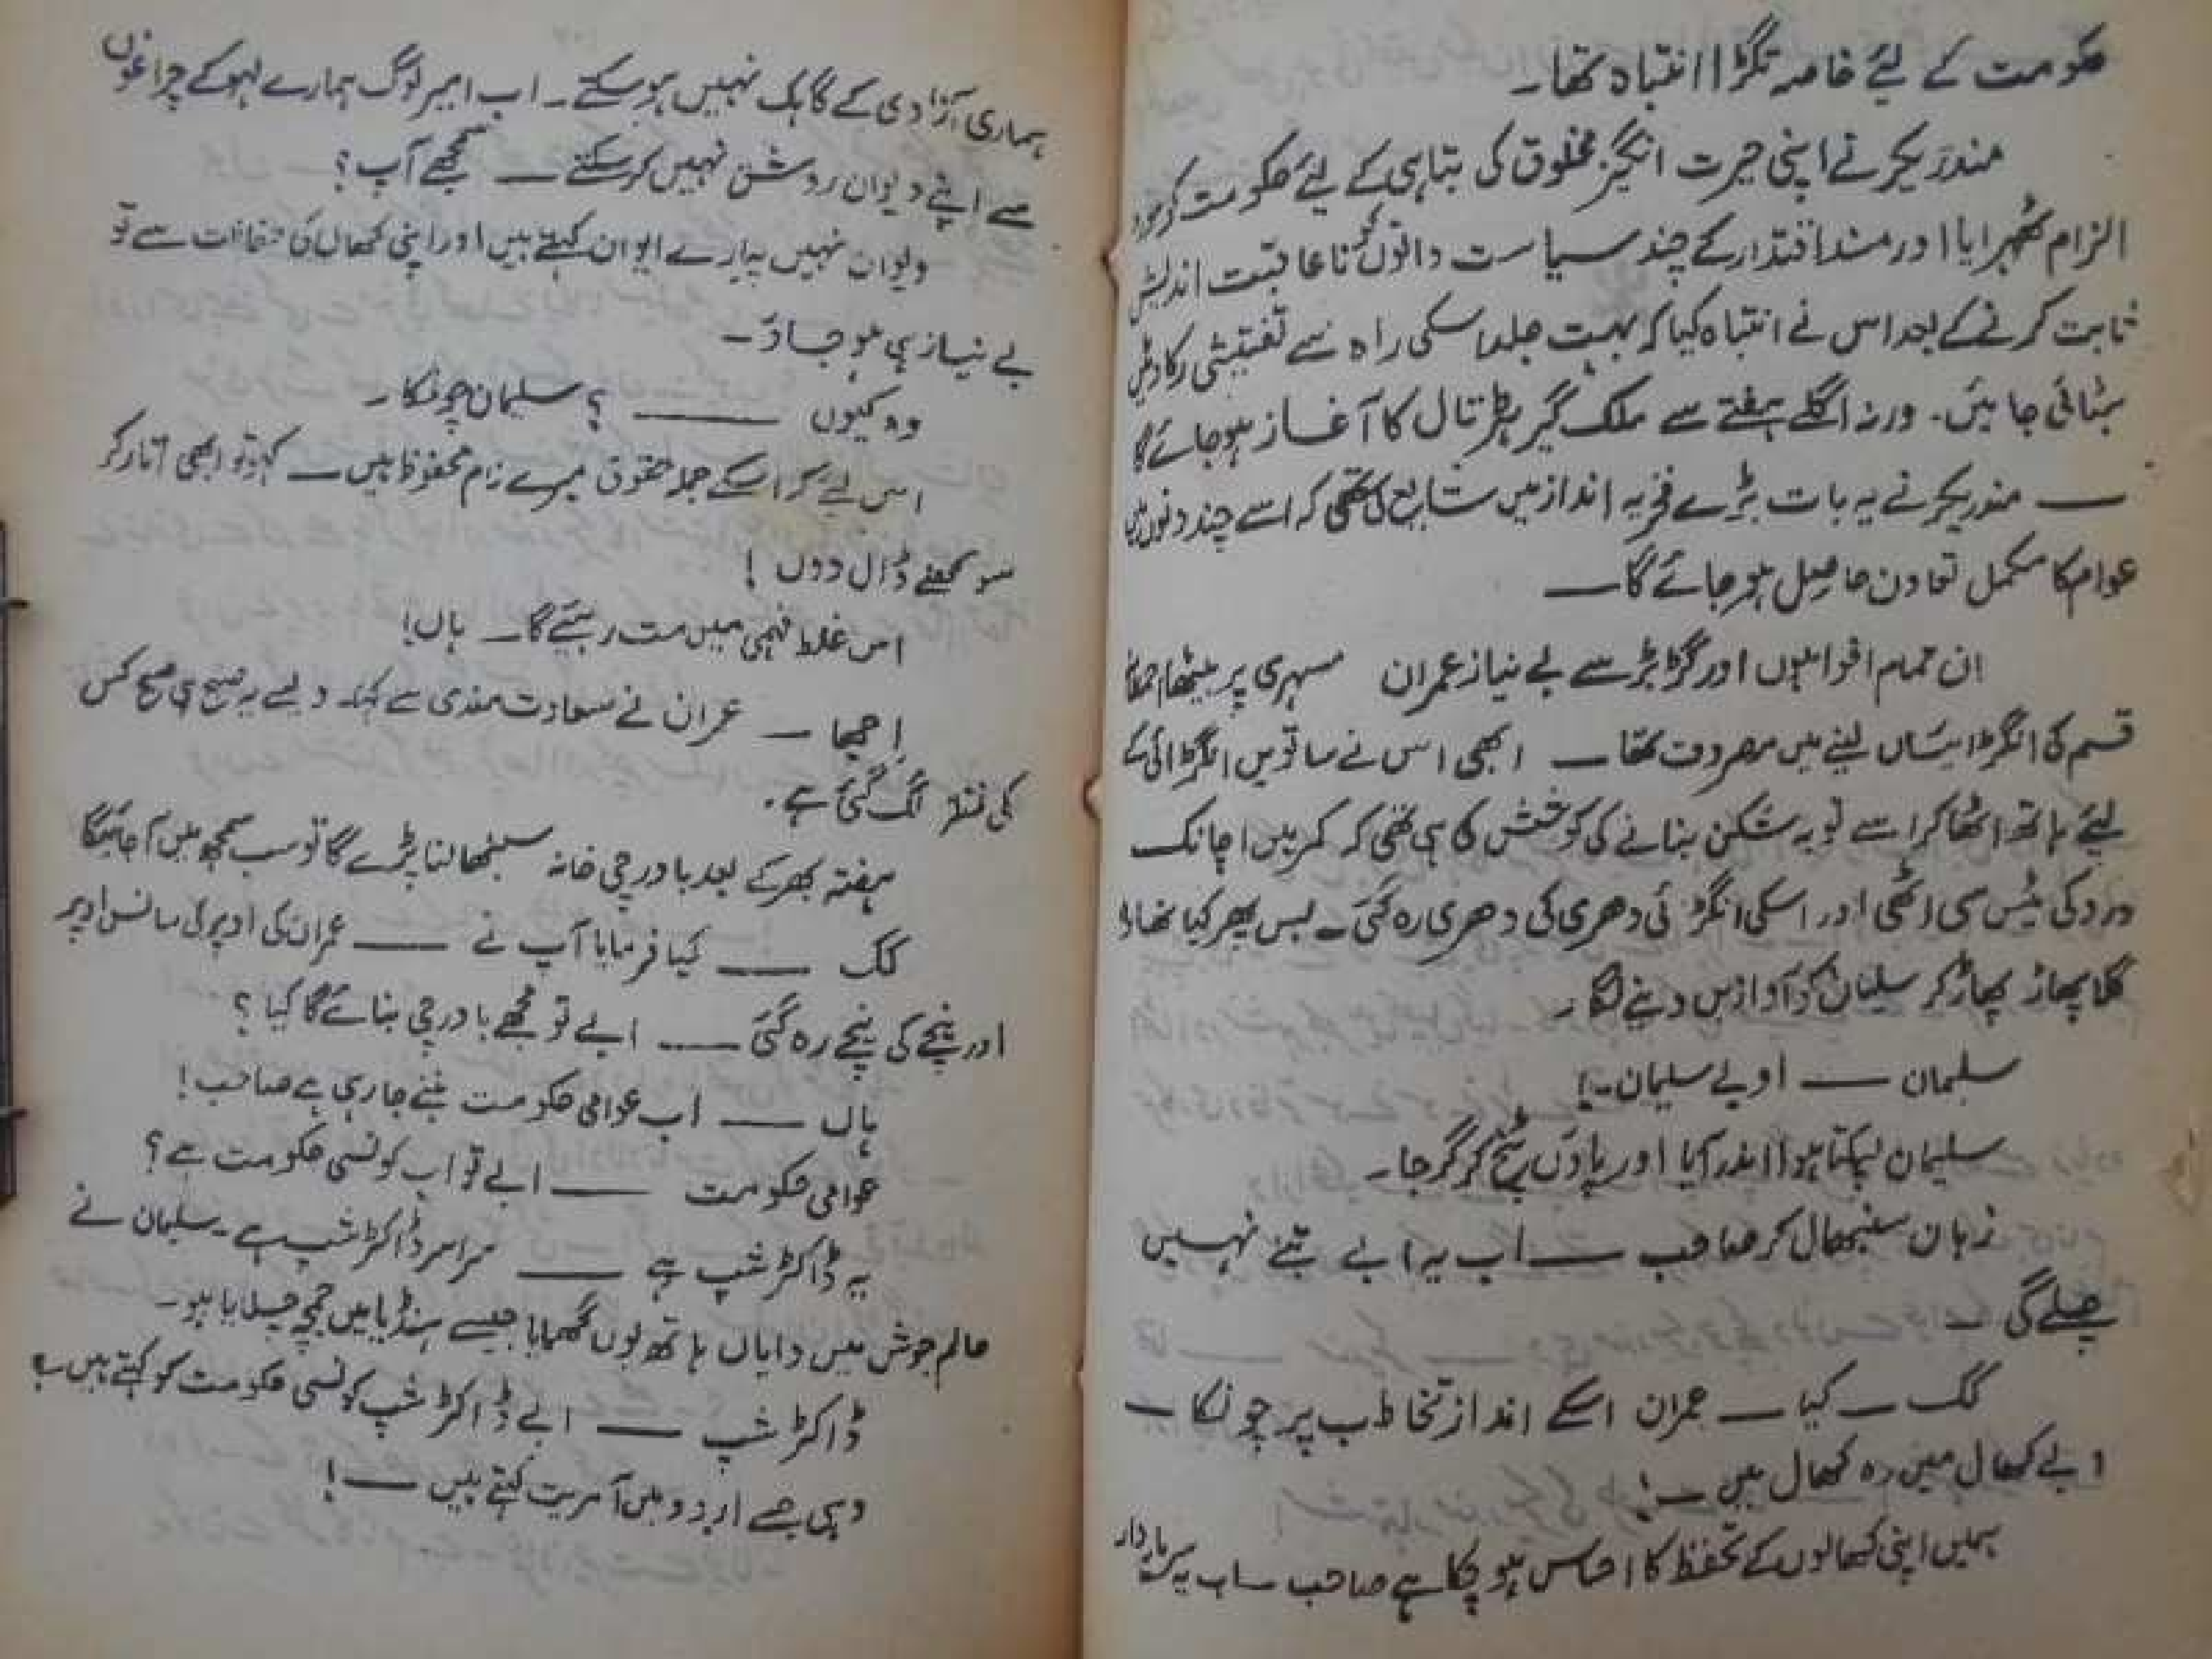 حکومت کے لئے خاصہ تگڑا انتباہ تھا۔
مندریکر نے اپنی حیرت انگیز مخلوق کی تباہی کے لئے حکومت کو مورد
الزام ٹھہرایا اور مسند اقتدار کے چند سیاست دانوں کو ناعاقبت اندیش
ثابت کرنے کے بعد اس نے انتباہ کیا کہ بہت جلد اسکی راہ سے تفتیشی رکاوٹیں
ہٹائی جائیں۔ ورنہ اگلے ہفتے سے ملک گیر ہڑتال کا آغاز ہو جائے گا
— مندریکر نے یہ بات بڑے فخریہ انداز میں شایع کی تھی کہ اسے چند دنوں میں
عوام کا مکمل تعاون حاصل ہو جائے گا —
ان تمام افواہوں اور گڑبڑ سے بے نیاز عمران مسہری پر بیٹھا
قسم کی انگڑائیاں لینے میں مصروف تھا — ابھی اس نے ساتویں انگڑائی کے
لئے ہاتھ اٹھا کر اسے توبہ شکن بنانے کی کوشش کی ہی تھی کہ کمر میں اچانک
درد کی ٹیس سی اٹھی اور اسکی انگڑائی دھری کی دھری رہ گئی۔ بس پھر کیا تھا وہ
گلا پھاڑ پھاڑ کر سلیمان کو آوازیں دینے لگا۔
سلیمان — اوبے سلیمان۔!
سلیمان لپکتا ہوا اندر آیا اور پاؤں پٹخ کر گرجا۔
زبان سنبھال کر صاحب — اب یہ ابے تبے نہیں
چلے گی —
کک — کیا — عمران اسکے انداز تخاطب پر چونکا —
ابے کھال میں رہ کھال میں —!
ہمیں اپنی کھالوں کے تحفظ کا احساس ہو چکا ہے صاحب — اب یہ سرمایہ دار
ہماری آزادی کے گاہک نہیں ہو سکتے۔ اب امیر لوگ ہمارے لہو کے چراغوں
سے اپنے دیوان روشن نہیں کر سکتے — سمجھے آپ؟
دیوان نہیں پیارے ایوان کہتے ہیں اور اپنی کھال کی حفاظت سے تو
بے نیاز ہی ہو جاؤ۔
وہ کیوں — ؟ سلیمان چونکا۔
اس لیے کہ اسکے جملہ حقوق میرے نام محفوظ ہیں — کہو تو ابھی اتار کر
سوکھنے ڈال دوں !
اس غلط فہمی میں مت رہیئے گا۔ ہاں!
اچھا — عمران نے سعادت مندی سے کہا۔ ویسے یہ صبح ہی صبح کس
کی نظر لگ گئی ہے۔
ہفتہ بھر کے بعد باورچی خانہ سنبھالنا پڑے گا تو سب سمجھ میں آ جائیگا
کک — کیا فرمایا آپ نے — عمران کی اوپر کی سانس اوپر
اور نیچے کی نیچے رہ گئی — ابے تو مجھے باورچی بنائے گا کیا ؟
ہاں — اب عوامی حکومت بننے جا رہی ہے صاحب!
عوامی حکومت — ابے تو اب کونسی حکومت ہے؟
یہ ڈاکٹر شپ ہے — سراسر ڈاکٹر شپ ہے۔ سلیمان نے
عالم جوش میں دایاں ہاتھ یوں گھمایا جیسے ہنڈیا میں چمچہ چلایا ہو۔
ڈاکٹر شپ — ابے ڈاکٹر شپ کونسی حکومت کو کہتے ہیں بے
وہی جسے اردو میں آمریت کہتے ہیں —!